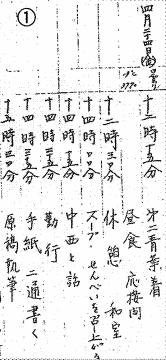 ①
四月二十四日(金)曇り
十二時十五分　第二青葦着
昼食　応接間
十二時三〇分　休憩　和室
十四時〇〇分　スープ、せんべいを召上がる
十四時二五分　中西と話
十四時三五分　勤行
十四時五五分　手紙 二通書く
十五時三〇分　原稿執筆